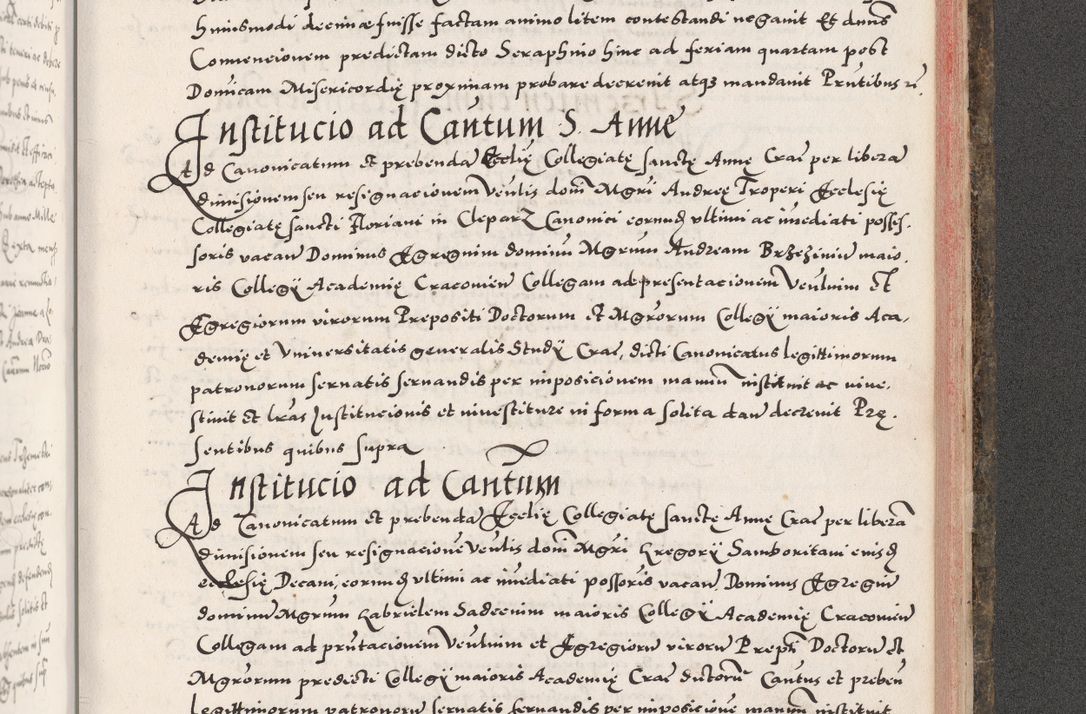 huiusmodi decimæ fuisse factam animo litem contestandi negauit Et dnus
Conuencionem predictam dicto Seraphino hinc ad feriam quartam post
Domicam Misericordię proximam probare decreuit atq3 mandauit Prntibus
Institucio ad Cantum S. Annę
Ad Canonicatum et prebendā Ecclię Collegiatę sanctę Annę Crac per liberā
dimisionem seu resignacionem Venlis domi Mgri Andreę Troperi Ecclesię
Collegiatę sancti Floriani in Cleparz Canonici eorundem vltimi ac immediati posses.
soris vacan Dominus Egregium dominum Mgrum Andream Brzezinium maio.
ris Collegÿ Academię Cracouien Collegam ad presentacionem Venlnim et
Egregiorum virorum Prepositi Doctorum et Mgrorum Collegÿ maioris Aca.
demię et Vniuersitatis generalis Studÿ Crac, dicti Canonicatus legittimorum
patronorum seruatis seruandis per imposicionem manuū instituit ac inue.
stiuit et lras Institucionis et inuestiture in forma solita dari decreuit Prę.
sentibus quibus supra
Institucio ad Cantum
Ad Canonicatum et prebendā Ecclię Collegiatę sanctę Annę Crac per liberā
dimisionem seu resignacionē Venlis domi Mgri Gregorÿ Samboritani eiusd
ecclesię Decani, eorund vltimi ac immediati possoris vacan, Dominus Egregiū
dominū Mgrum Gabrielem Sadecium maioris Collegÿ Academię Cracouien
Collegam ad prntacionem Venlnim et Egregiorū virorū Prepti Doctorū et
Mgrorum predicti Collegÿ maioris Academię Crac dictorū Cantus et preben
legittimorum patronorū seruatis seruandis per imposicionē manuū instituit